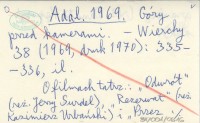 Adal, 1969. Góry
przed kamerami. – Wierchy
38 (1969, druk 1970): 335–
–336, il.
O filmach tatrz.: „Odwrót"
(reż. Jerzy Surdel), „Rezerwat" (reż.
Kazimierz Urbański) i „Przez